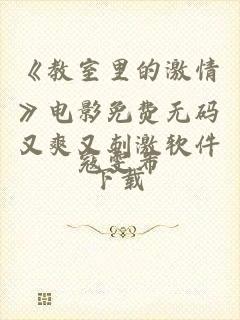 《教室里的激情
》电影免费无码
又爽又刺激软件
下载
寇雯布